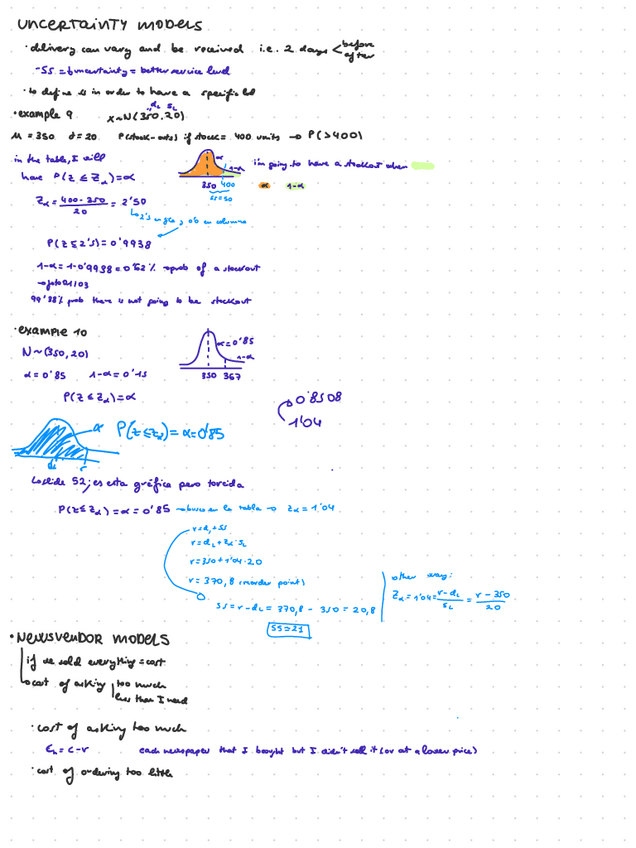 UNCERTAINTY MODELS
· delivery can vary and be received i.e. 2 days < before
after
- SS = uncertainty = better service level
· to define ss in order to have a specific
dL SL
· example 9 X~N(350,20)
M = 350 σ=20 P(stock-outs) if stock = 400 units → P(>400)
in the table, I will
have P(z ≤ Zα)=α
α
1-α
350 400
SS=50
i'm going to have a stockout when
α 1-α
Zα = 400-350 / 20 = 2'50
2's en fila, 0'0 en columna
P(z≤2's)=0'9938
1-α=1-0'9938=0'62% → prob of a stockout
99'38% prob there is not going to be stockout
· example 10
N~(350,20)
α=0'85 1-α=0'15
α=0'85
1-α
350 367
P(z ≤ Zα)=α
0'8508
1'04
α P(z≤Zα)=α=0'85
dL r
slide 52; es esta gráfica pero torcida
P(z≤Zα)=α=0'85 → busco en la tabla → Zα=1'04
r=dL+SS
r=dL+Zα·SL
r=350+1'04·20
r=370,8 (reorder point)
SS=r-dL = 370,8 - 350 = 20,8
SS=21
other way:
Zα=1'04= r-dL / SL = r-350 / 20
· NEWSVENDOR MODELS
if we sold everything = cost
cost of asking too much
less than I need
· cost of asking too much
Ch = c-r each newspaper that I bought but I didn't sell it (or at a lower price)
· cost of ordering too little